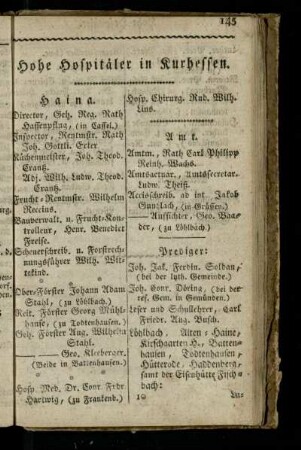 145
Hohe Hospitäler in Kurhessen.
Haina.
Director, Geh. Reg. Rath
Hassenpflug, (in Cassel.)
Inspector, Rentmstr. Rath
Joh. Gottl. Exter
Küchenmeister, Joh. Theod.
Crantz.
Adj. Wilh. Ludw. Theod.
Crantz.
Frucht-Rentmstr. Wilhelm
Reccius.
Bauverwalt. u. Frucht-Kon-
trolleur, Henr. Benedict
Freise.
Scheuerschreib. u. Forstrech-
nungsführer Wilh. Wit-
tekind.
Ober-Förster Johann Adam
Stahl, (zu Löhlbach.)
Reit. Förster Georg Mühl-
hause, (zu Todtenhausen.)
Geh. Förster Aug. Wilhelm
Stahl,
— Geo. Kleeberger.
(Beide in Battenhausen.)
Hosp. Med. Dr. Conr. Frdr.
Hartwig, (zu Frankenb.)
Hosp. Chirurg. Rud. Wilh.
Lins.
Amt.
Amtm., Rath Carl Philipp
Reinh. Wachs.
Amtsactuar., Amtssecretar.
Ludw. Theiß.
Accisschreib. ad int. Jakob
Guntlach, (in Grüsen.)
— Aufsichter, Geo. Baa-
der, (zu Löhlbach)
Prediger:
Joh. Jak. Ferdin. Soldan,
(bei der luth. Gemeinde.)
Joh. Conr. Döring, (bei der
ref. Gem. in Gemünden.)
Leser und Schullehrer, Carl
Friedr. Aug. Busch.
Löhlbach, Alten-Haine,
Kirschgarten H., Batten-
hausen, Todtenhausen,
Hütterode, Haddenberg,
samt der Eisenhütte Fisch-
bach:
10